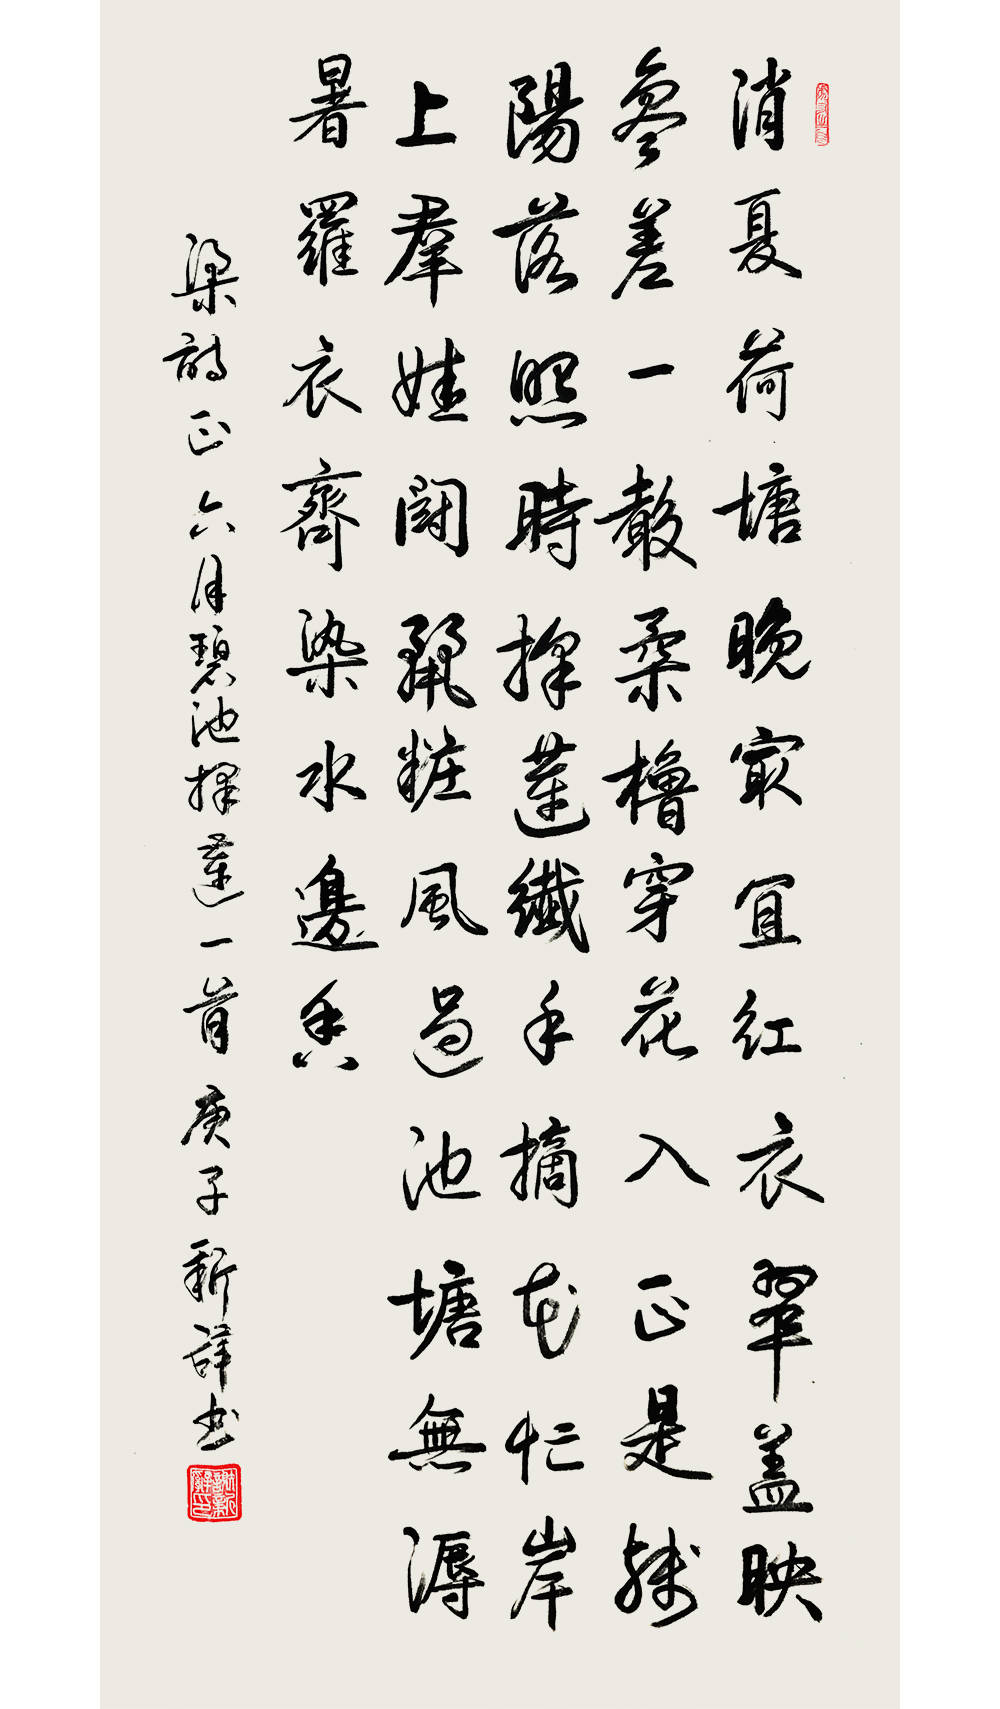 消夏荷塘晚最宜紅衣翠蓋映
參差一聲柔櫓穿花入正是殘
陽落照時採蓮纖手摘花忙岸
上羣娃鬪粧風過池塘無溽
暑羅衣齊染水邊香
梁詩正六月碧池採蓮一首庚子新書